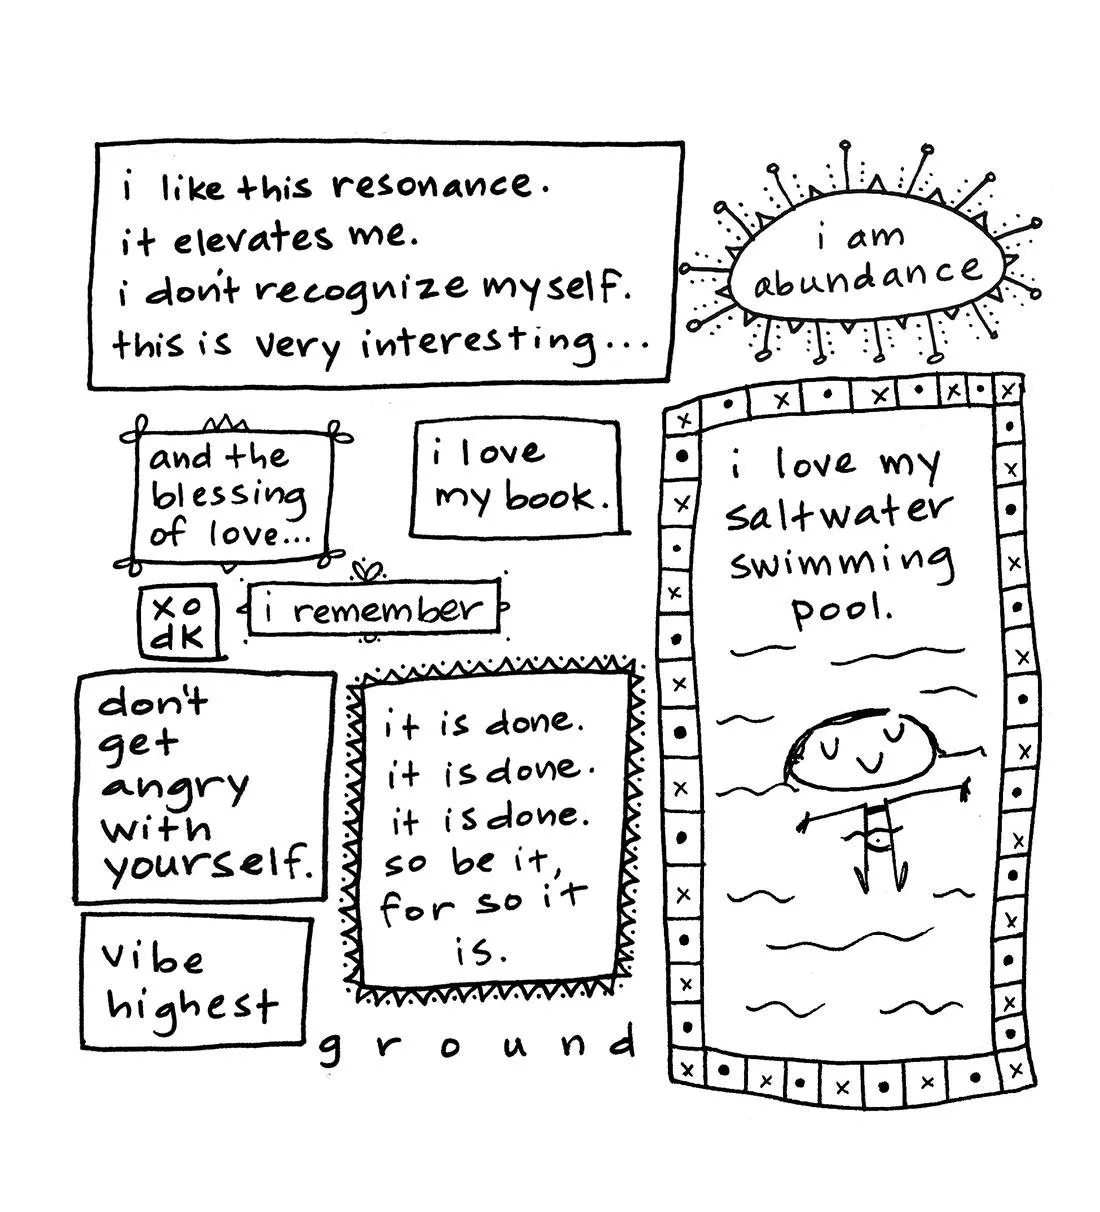 i like this resonance.
it elevates me.
i don't recognize myself.
this is very interesting...
i am
abundance
and the
blessing
of love...
i love
my book.
i love my
saltwater
swimming
pool.
xo
dk
i remember
don't
get
angry
with
yourself.
it is done.
it is done.
it is done.
so be it,
for so it
is.
vibe
highest
ground